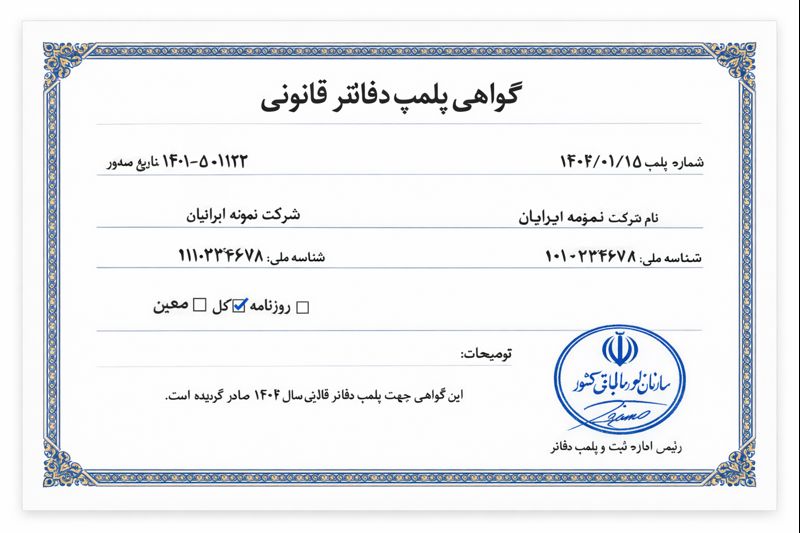 گواهی پلمپ دفاتر قانونی
شماره پلمب ۱۴۰۴/۰۱/۱۵
۱۴۰۱-۵۰۱۱۲۲ تاریخ صدور
نام شرکت نمونه ایرایان
شرکت نمونه ایرانیان
شناسه ملی: ۱۰۱۰۲۳۴۶۷۸
شناسه ملی: ۱۱۱۰۲۳۴۶۷۸
روزنامه کل معین
توضیحات:
این گواهی جهت پلمپ دفاتر سال ۱۴۰۴ صادر گردیده است.
سازمان کشور
رئیس اداره ثبت و پلمپ دفاتر